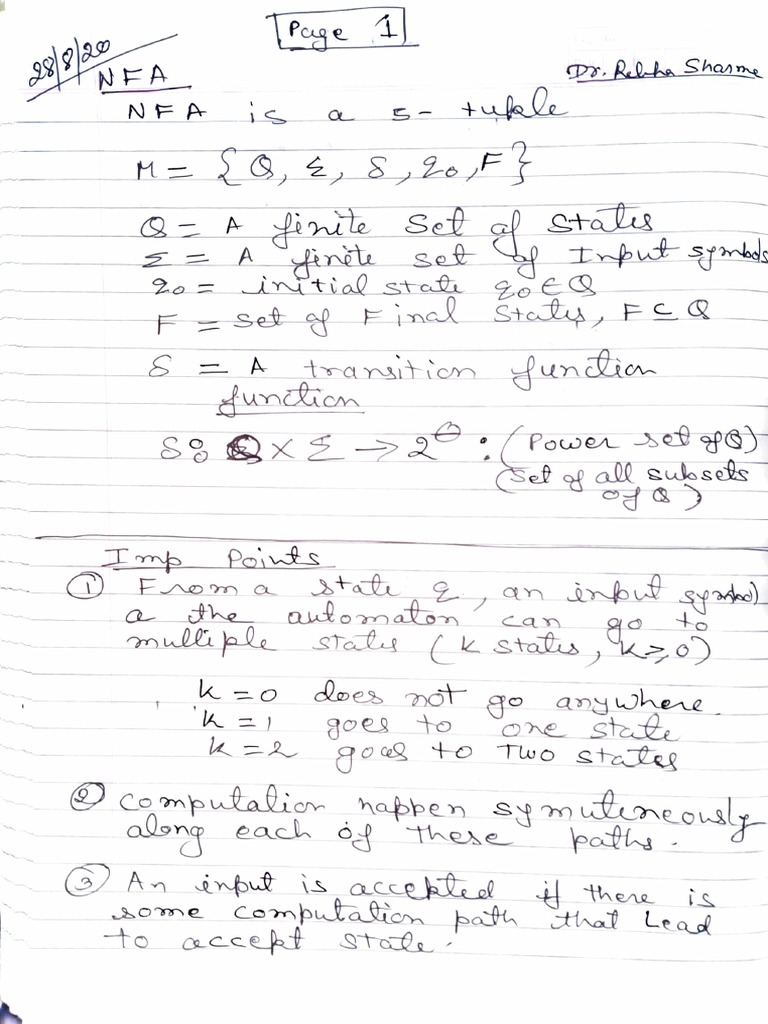 Page 1
28/8/20
Dr. Rekha Sharma
NFA
NFA is a 5- tuple
M = {Q, Σ, δ, q0, F}
Q = A finite Set of States
Σ = A finite set of Input symbols
q0 = initial state q0 ∈ Q
F = set of Final States, F ⊆ Q
δ = A transition function
function
δ: Q × Σ → 2^Q : (Power set of Q)
(Set of all subsets
of Q)
Imp Points
① From a state q, an input symbol
a the automaton can go to
multiple states (k states, k ≥ 0)
k = 0 does not go anywhere.
k = 1 goes to one state
k = 2 goes to Two states
② Computation happen symuteneously
along each of these paths.
③ An input is accepted if there is
some computation path that Lead
to accept state.